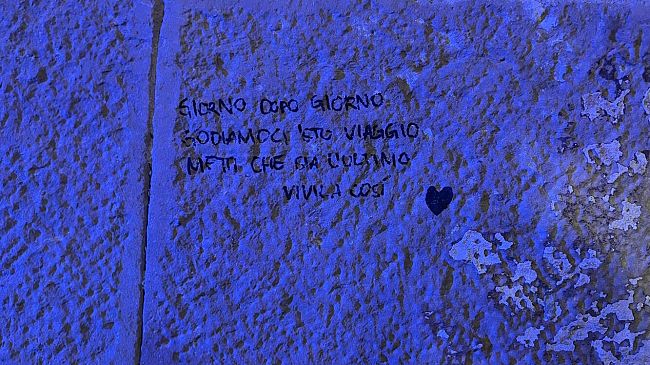 GIORNO DOPO GIORNO
GODIAMOCI 'STO VIAGGIO
METTI CHE SIA L'ULTIMO
VIVILA COSÍ